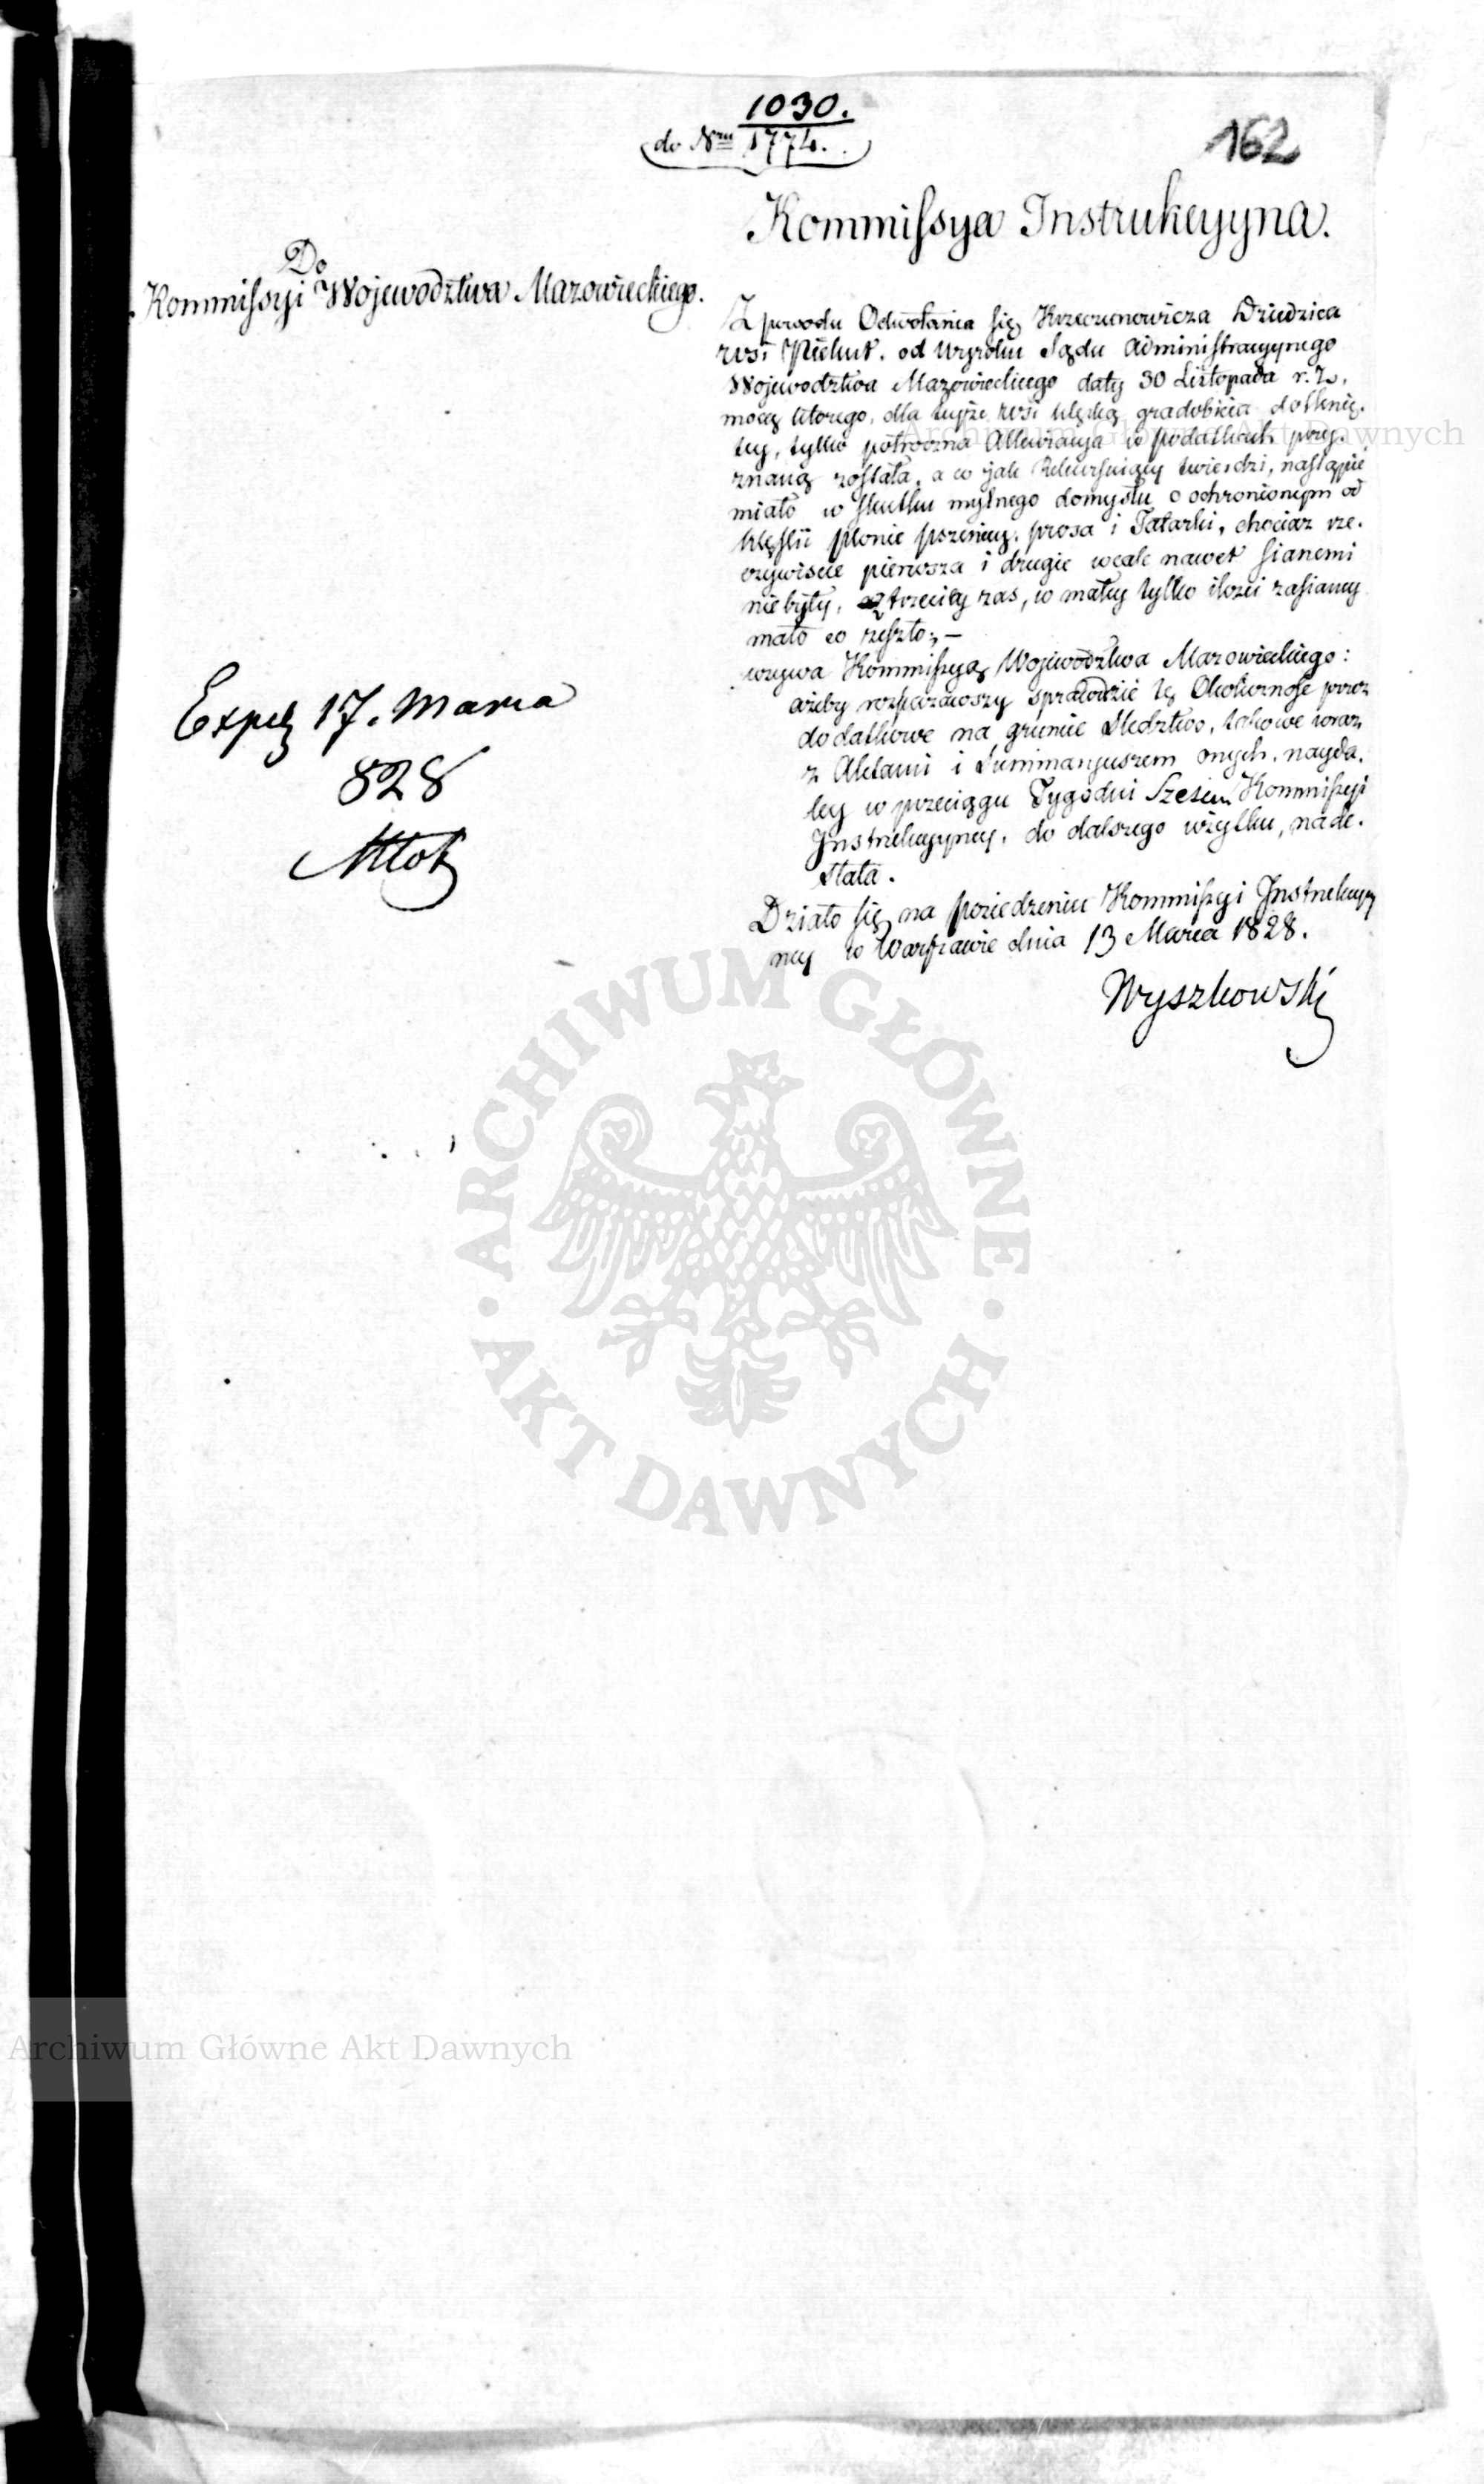 1030.
do Nru 1774.
162
Kommissya Instrukcyyna.
Do
Kommissyi Województwa Mazowieckiego.
Z powodu Odwołania się Krzeczunowicza Dziedzica
wsi Piekut, od Wyroku Sądu Administracyynego
Województwa Mazowieckiego daty 30 Listopada r. z.,
mocą którego, dla teyże wsi klęską gradobicia dotknię-
tey, tylko półroczna Allewiacya w podatkach przy-
znaną została, a co jak Rekursuiący twierdzi, nastąpić
miało w skutku mylnego domysłu o ochronionym od
klęski plonie pszenicy, prosa i Tatarki, chociaż rze-
czywiście pierwsza i drugie wcale nawet sianemi
nie były, z trzeciey zas, w małey tylko ilości zasianey
mało co zeszło; —
wzywa Kommissyą Województwa Mazowieckiego:
ażeby sprawdzić tę Okoliczność przez
dodatkowe na gruncie Śledztwo, takowe wraz
z Aktami i Summaryuszem onych, nayda-
ley w przeciągu Tygodni Sześciu Kommissyi
Instrukcyyney, do dalszego użytku, nade-
słała.
Działo się na posiedzeniu Kommissyi Instrukcyy
ney w Warszawie dnia 13 Marca 1828.
Wyszkowski
Exped 17. Marca
828
Archiwum Główne Akt Dawnych
ARCHIWUM GŁÓWNE
AKT DAWNYCH
Archiwum Główne Akt Dawnych